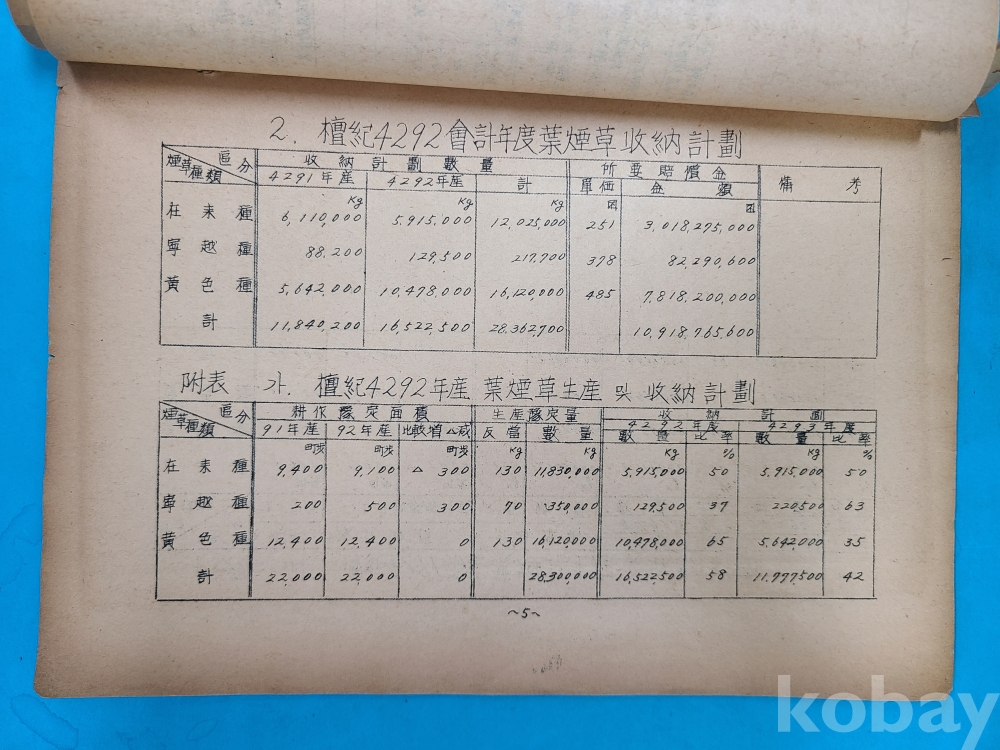 2. 檀紀4292會計年度葉煙草收納計劃
區分 收納計劃數量 所要賠償金 備考
煙草種類 4291年産 4292年産 計 單価 金額
Kg Kg Kg 圜 圜
在来種 6,110,000 5,915,000 12,025,000 251 3,018,275,000
寧越種 88,200 129,500 217,700 378 82,290,600
黃色種 5,642,000 10,478,000 16,120,000 485 7,818,200,000
計 11,840,200 16,522,500 28,362,700 10,918,765,600
附表 가. 檀紀4292年産 葉煙草生産 및 收納計劃
區分 耕作豫定面積 生産豫定量 收納計劃
4292年度 4293年度
煙草種類 91年産 92年産 比較增△減 反當 數量 數量 比率 數量 比率
町步 町步 町步 Kg Kg Kg % Kg %
在来種 9,400 9,100 △ 300 130 11,830,000 5,915,000 50 5,915,000 50
寧越種 200 500 300 70 350,000 129,500 37 220,500 63
黃色種 12,400 12,400 0 130 16,120,000 10,478,000 65 5,642,000 35
計 22,000 22,000 0 28,300,000 16,522,500 58 11,777,500 42
~5~
kobay